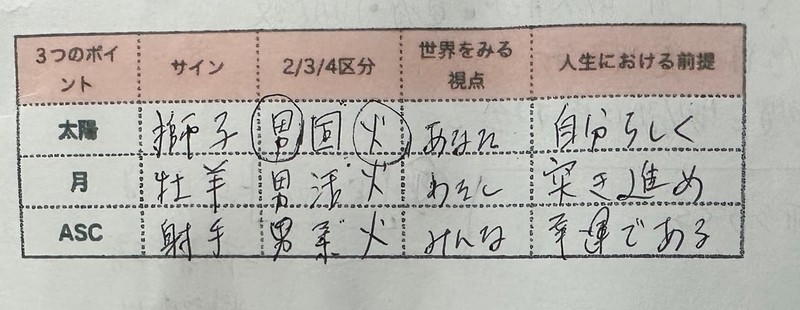 3つのポイント サイン 2/3/4区分 世界をみる視点 人生における前提
太陽 獅子 男 固 火 あなた 自分らしく
月 牡羊 男 活 火 わたし 突き進め
ASC 射手 男 柔 火 みんな 幸運である